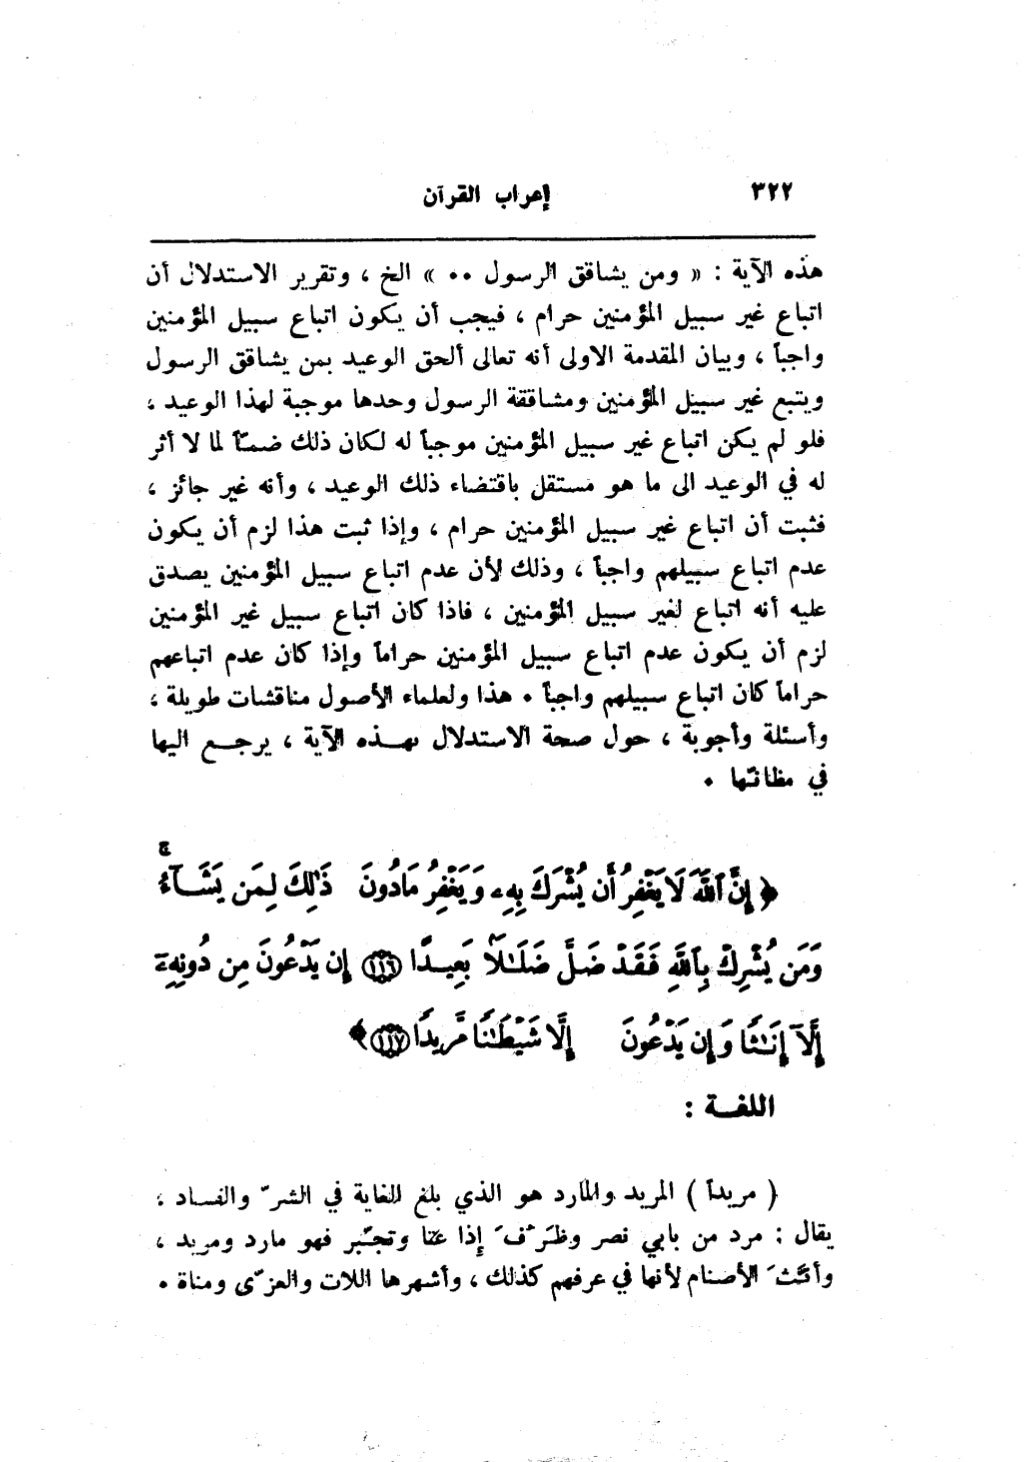 ٣٢٢
إعراب القرآن
هذه الآية : « ومن يشاقق الرسول ٠٠ » الخ ، وتقرير الاستدلال أن
اتباع غير سبيل المؤمنين حرام ، فيجب أن يكون اتباع سبيل المؤمنين
واجباً ، وبيان المقدمة الاولى أنه تعالى ألحق الوعيد بمن يشاقق الرسول
ويتبع غير سبيل المؤمنين ومشاققة الرسول وحدها موجبة لهذا الوعيد ،
فلو لم يكن اتباع غير سبيل المؤمنين موجباً له لكان ذلك ضمّاً لما لا أثر
له في الوعيد الى ما هو مستقل باقتضاء ذلك الوعيد ، وأنه غير جائز ،
فثبت أن اتباع غير سبيل المؤمنين حرام ، وإذا ثبت هذا لزم أن يكون
عدم اتباع سبيلهم واجباً ، وذلك لأن عدم اتباع سبيل المؤمنين يصدق
عليه أنه اتباع لغير سبيل المؤمنين ، فاذا كان اتباع سبيل غير المؤمنين
لزم أن يكون عدم اتباع سبيل المؤمنين حراماً وإذا كان عدم اتباعهم
حراماً كان اتباع سبيلهم واجباً ٠ هذا ولعلماء الأصول مناقشات طويلة ،
وأسئلة وأجوبة ، حول صحة الاستدلال بهذه الآية ، يرجع اليها
في مظانّها ٠
﴿ إِنَّ ٱللَّهَ لَا يَغْفِرُ أَن يُشْرَكَ بِهِۦ وَيَغْفِرُ مَا دُونَ ذَٰلِكَ لِمَن يَشَآءُ ۚ
وَمَن يُشْرِكْ بِٱللَّهِ فَقَدْ ضَلَّ ضَلَٰلًۢا بَعِيدًا ﴿١١٦﴾ إِن يَدْعُونَ مِن دُونِهِۦٓ
إِلَّآ إِنَٰثًا وَإِن يَدْعُونَ إِلَّا شَيْطَٰنًا مَّرِيدًا ﴿١١٧﴾ ﴾
اللغة :
( مريداً ) المريد والمارد هو الذي بلغ الغاية في الشرّ والفساد ،
يقال : مرد من بابي نصر وظَرُفَ إِذا عتا وتجبّر فهو مارد ومريد ،
وأنّثَ الأصنام لأنها في عرفهم كذلك ، وأشهرها اللات والعزّى ومناة ٠